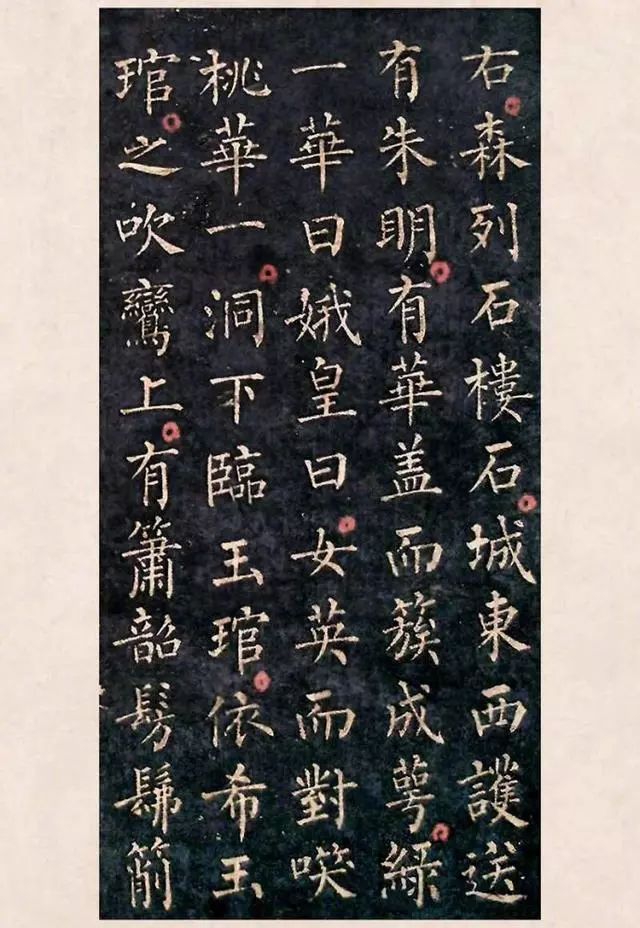 右森列石樓石城東西護送
有朱明有華盖而簇成萼綠
一華曰娥皇曰女英而對𠸄
桃華一洞下臨玉琯依希玉
琯之吹鸞上有簫韶髣髴箾